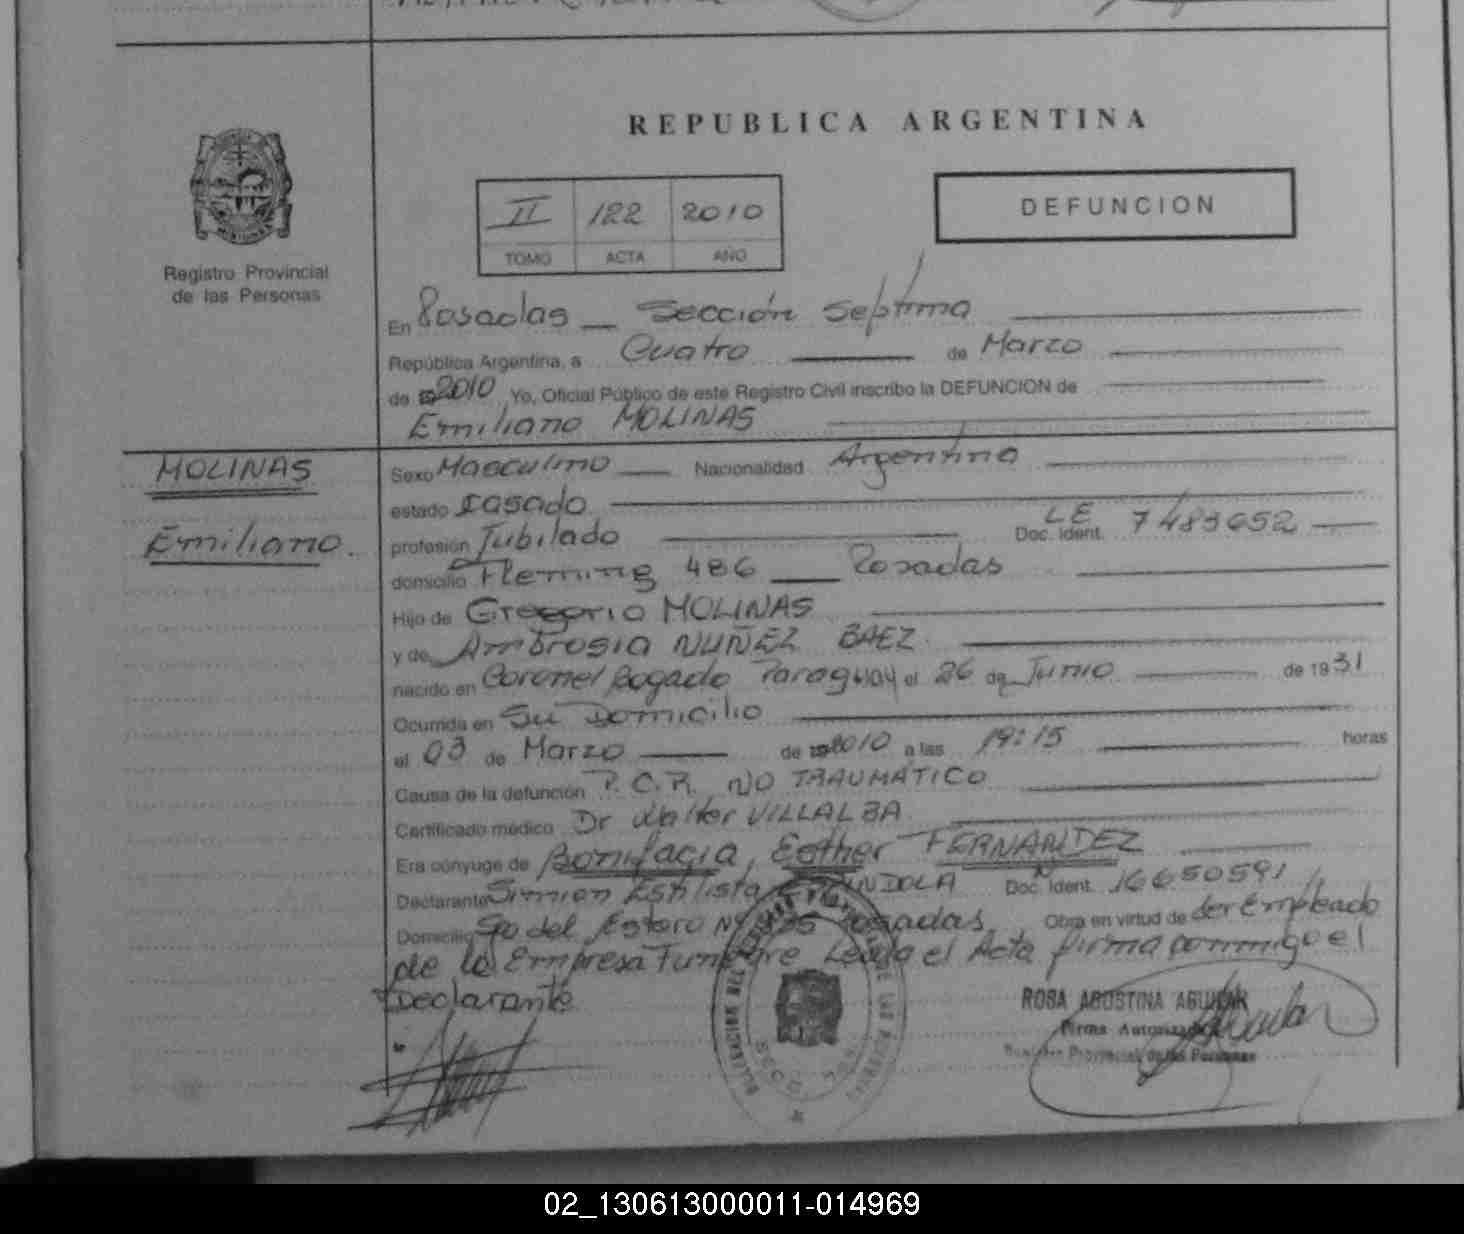 REPUBLICA ARGENTINA
II 122 2010
TOMO ACTA AÑO
DEFUNCION
Registro Provincial
de las Personas
En Posadas — Sección Septima
República Argentina, a Cuatro de Marzo
de 2010 Yo, Oficial Público de este Registro Civil inscribo la DEFUNCION de
Emiliano MOLINAS
MOLINAS
Emiliano.
Sexo Masculino Nacionalidad Argentina
estado casado
profesión Jubilado Doc. Ident. LE 7483652
domicilio Fleming 486 Posadas
Hijo de Gregorio MOLINAS
y de Ambrosia NUÑEZ BAEZ
nacido en Coronel Bogado Paraguay el 26 de Junio de 1931
Ocurrida en Su Domicilio
el 03 de Marzo de 2010 a las 19:15 horas
Causa de la defunción P.C.R. NO TRAUMÁTICO
Certificado médico Dr Walter VILLALBA
Era cónyuge de Bonifacia, Esther FERNANDEZ
Declarante Simion Estilista Doc. Ident. 16650591
Domicilio Sgo del Estero Nº Posadas. Obra en virtud de ser Empleado
de la Empresa Funebre Leida el Acta firma conmigo el
Declarante
ROSA AGOSTINA AGUILAR
Firma Autorizada
Registro Provincial de las Personas
02_130613000011-014969